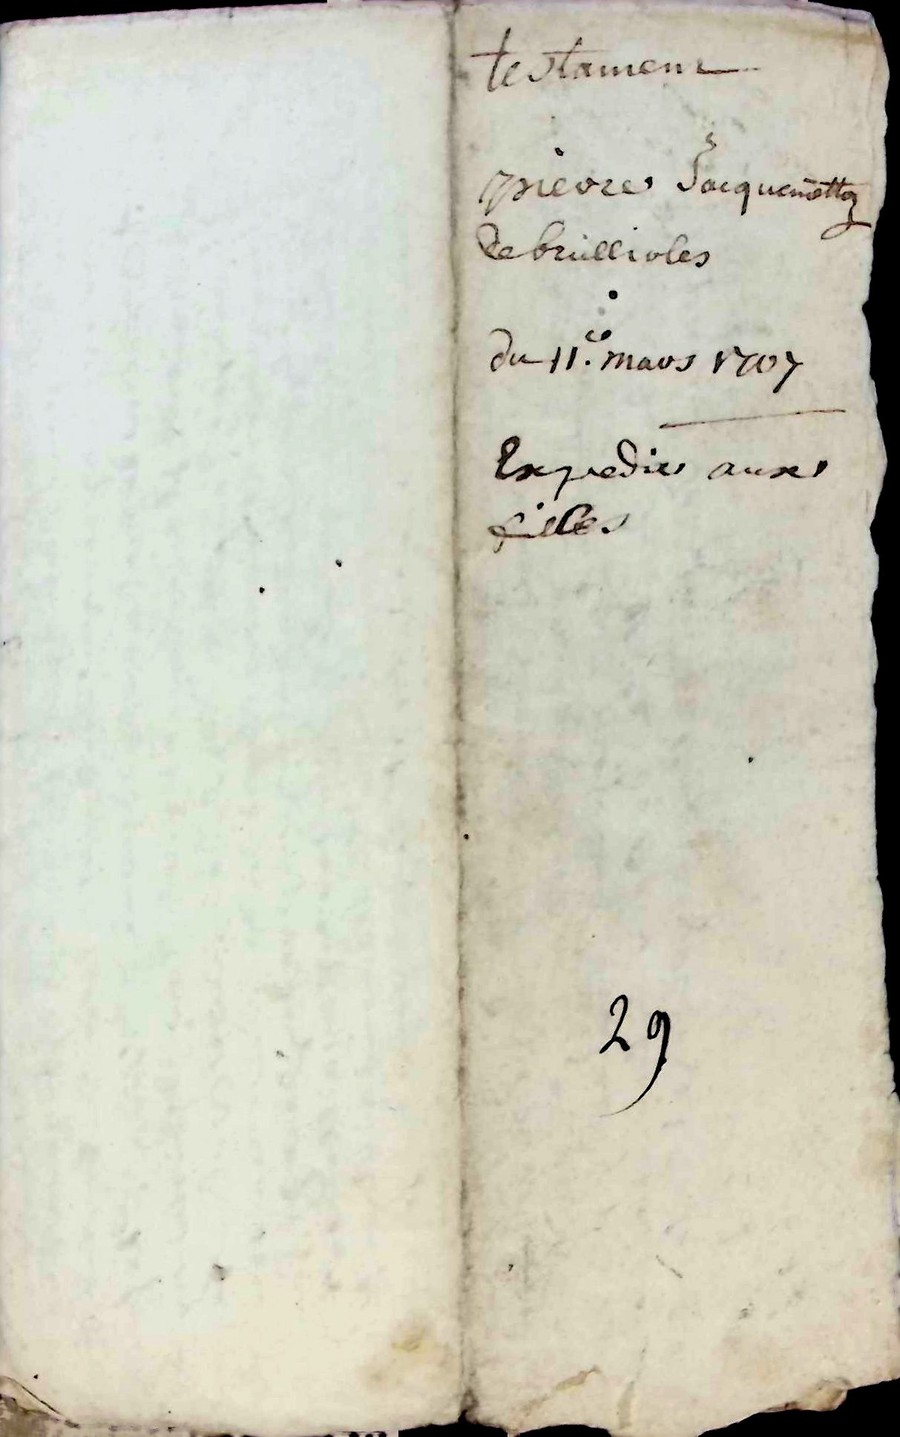 testament
pierre Jacquemetto
de brullioles
du 11.e mars 1707
Expedie aux
filles
29